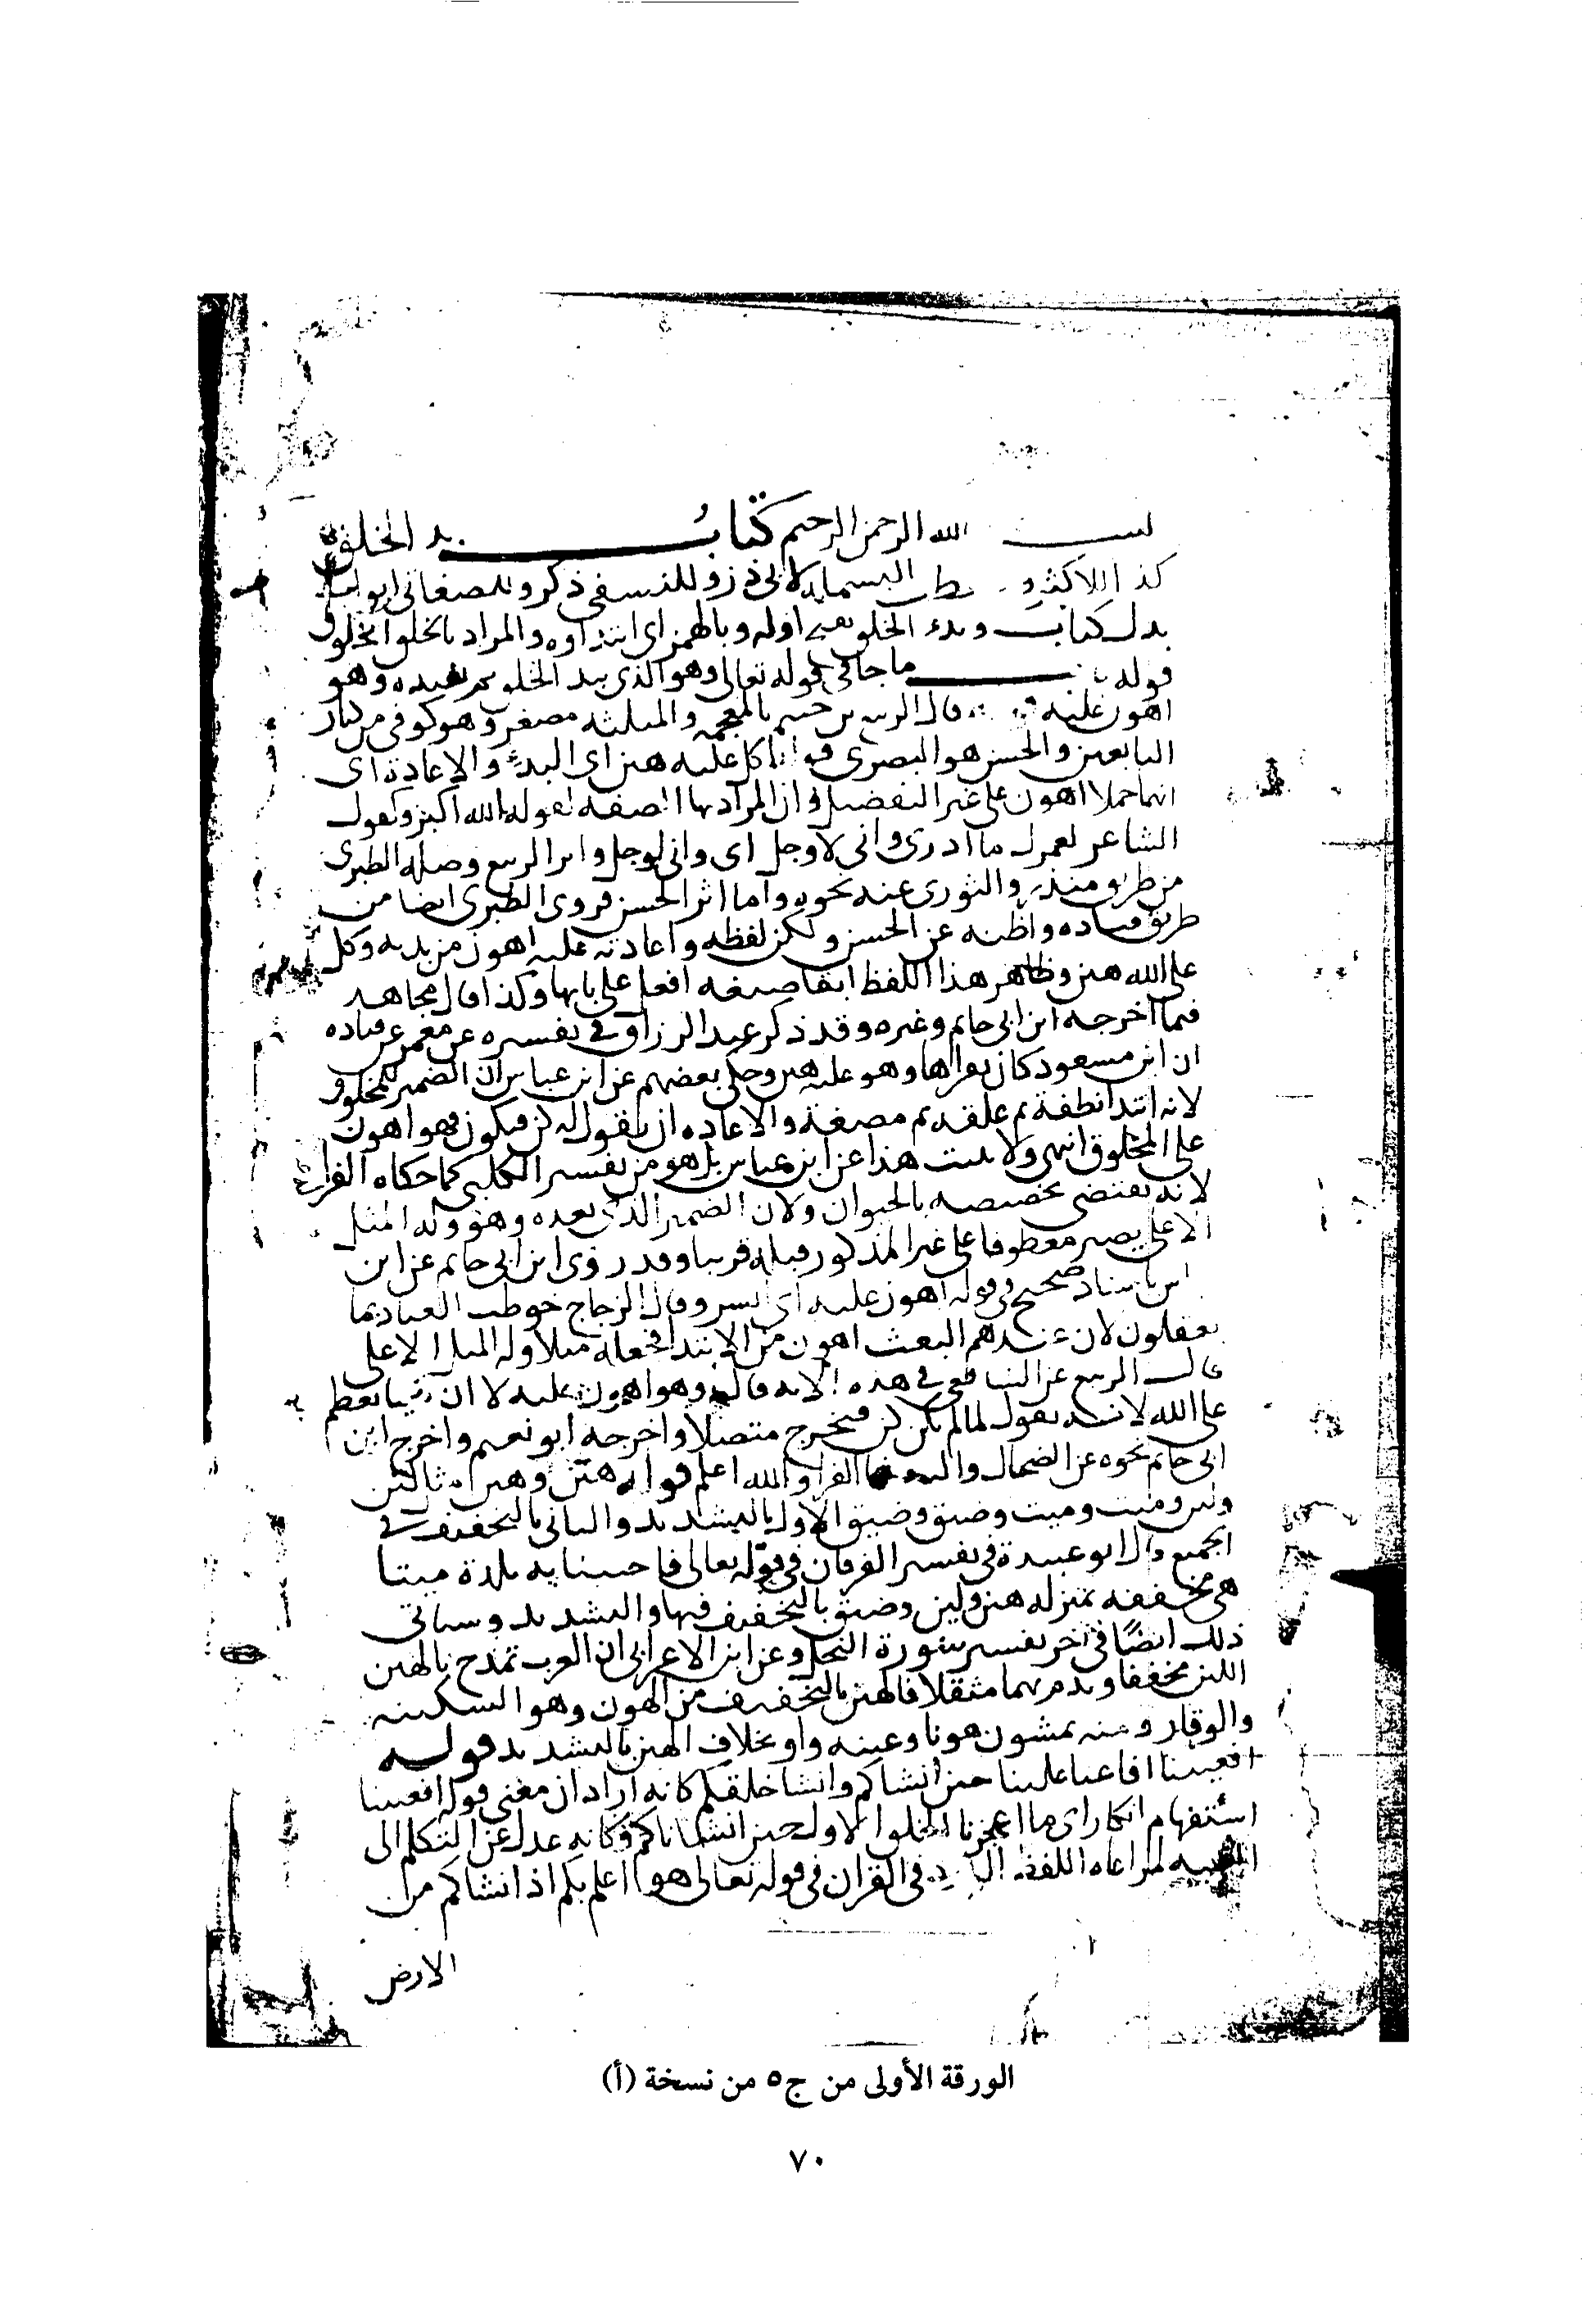 بسم الله الرحمن الرحيم كتاب بدء الخلق
كذا للاكثر وسقطت البسملة لابي ذر وللنسفي ذكر وللصغاني ابواب
بدل كتاب وبدء الخلق بفتح اوله وبالهمز اي ابتداوه والمراد بالخلق المخلوق
قوله باب ما جا في قوله تعالى وهو الذي يبدا الخلق ثم يعيده وهو
اهون عليه قال الربيع بن خثيم بالمعجمه والمثلثه مصغر وهو كوفي من كبار
التابعين والحسن هو البصري قوله كل عليه هين اي البدء والاعادة اي
انهما حملا اهون على غير التفضيل وان المراد بها الصفه كقوله الله اكبر وكقول
الشاعر لعمرك ما ادري واني لاوجل اي واني لوجل واثر الربيع وصله الطبري
من طريق منذر والثوري عنه نحوه واما اثر الحسن فروى الطبري ايضا من
طريق قتاده واظنه عن الحسن ولكن لفظه واعادته عليه اهون من بديه وكل
على الله هين وظاهر هذا اللفظ ابقا صيغه افعل على بابها وكذا قال مجاهد
فيما اخرجه ابن ابي حاتم وغيره وقد ذكر عبد الرزاق في تفسيره عن معمر عن قتاده
ان ابن مسعود كان يقراها وهو عليه هين وحكى بعضهم عن ابن عباس ان الضمير للمخلوق
لانه ابتدا نطفة ثم علقه ثم مضغة والاعاده ان يقول له كن فيكون فهو اهون
على المخلوق انتهى ولا يثبت هذا عن ابن عباس بل هو من تفسير الكلبي كما حكاه الفرا
لانه يقتضي تخصيصه بالحيوان ولان الضمير الذي بعده وهو وله المثل
الاعلى يصير معطوفا على غير المذكور قبله قريبا وقد روى ابن ابي حاتم عن ابن
باسناد صحيح في قوله اهون عليه اي ايسر وقال الزجاج خوطب العباد بما
يعقلون لان عندهم البعث اهون من الابتدا فجعله مثلا وله المثل الاعلى
قال الربيع عن الشافعي في هذه الايه قال وهو اهون عليه لا ان شيا يعظم
على الله لانه يقول لما لم يكن كن فيخرج متصلا واخرجه ابو نعيم واخرج ابن
ابي حاتم نحوه عن الضحاك واليه نحا الفرا والله اعلم قوله هين وهين مثل لين
ولين وميت وميت وضيق وضيق الاول بالتشديد والثاني بالتخفيف في
الجميع قال ابو عبيدة في تفسير الفرقان في قوله تعالى فاحيينا به بلدة ميتا
هي مخففه بمنزله هين ولين وضيق بالتخفيف فيها والتشديد وسياتي
ذلك ايضا في اخر تفسير سورة النحل وعن ابن الاعرابي ان العرب تمدح بالهين
اللين مخففا وتذم بهما مثقلا فالهين بالتخفيف من الهون وهو السكينه
والوقار ومنه يمشون هونا وعينه واو بخلاف الهين بالتشديد قوله
افعيينا افاعيا علينا حين انشاكم وانشا خلقكم كانه اراد ان معنى قوله افعيينا
استفهام انكار اي ما اعجزنا الخلق الاول حين انشاناكم فكانه عدل عن التكلم الى
الغيبه لمراعاه اللفظ الوارد في القران في قوله تعالى هو اعلم بكم اذ انشاكم من
الارض
الورقة الأولى من ج٥ من نسخة (أ)
٧٠